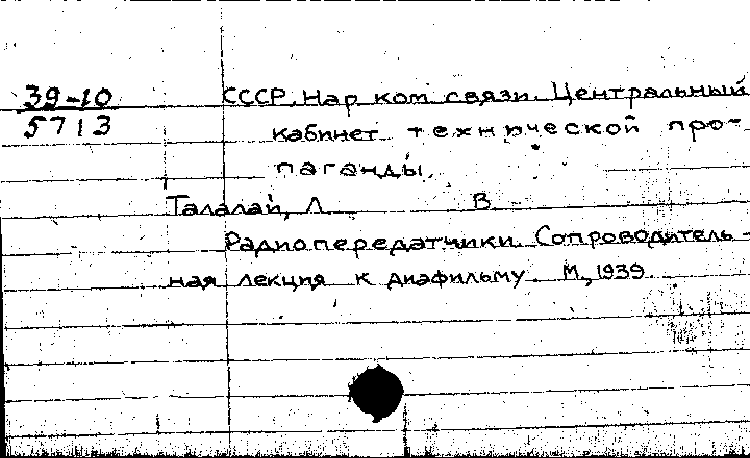 39-10
5713
СССР. Нар ком связи. Центральный
кабинет технической про-
паганды.
Талалай, Л. В
Радиопередатчики. Сопроводитель-
ная лекция к диафильму. М., 1939